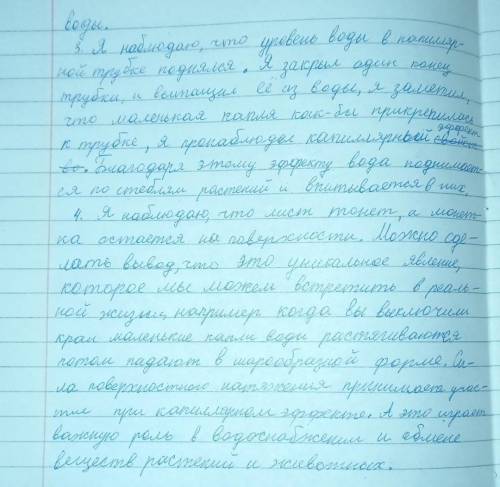 воды.
3. Я наблюдаю, что уровень воды в капиляр-
ной трубке поднялся. Я закрыл один конец
трубки, и вытащил её из воды, я заметил,
что маленькая капля как-бы прикрепилась
к трубке, я пронаблюдал капиллярный эффект свойст-
во. Благодаря этому эффекту вода поднимает-
ся по стеблям растений и впитывается в них.
4. Я наблюдаю, что лист тонет, а монет-
ка остается на поверхности. Можно сде-
лать вывод, что это уникальное явление,
которое мы можем встретить в реаль-
ной жизни, например когда вы выключили
кран маленькие капли воды растягиваются
потом падают в шарообразной форме. Си-
ла поверхностного натяжения принимает учас-
тие при капиллярном эффекте. А это играет
важную роль в водоснабжении и обмене
веществ растений и животных.